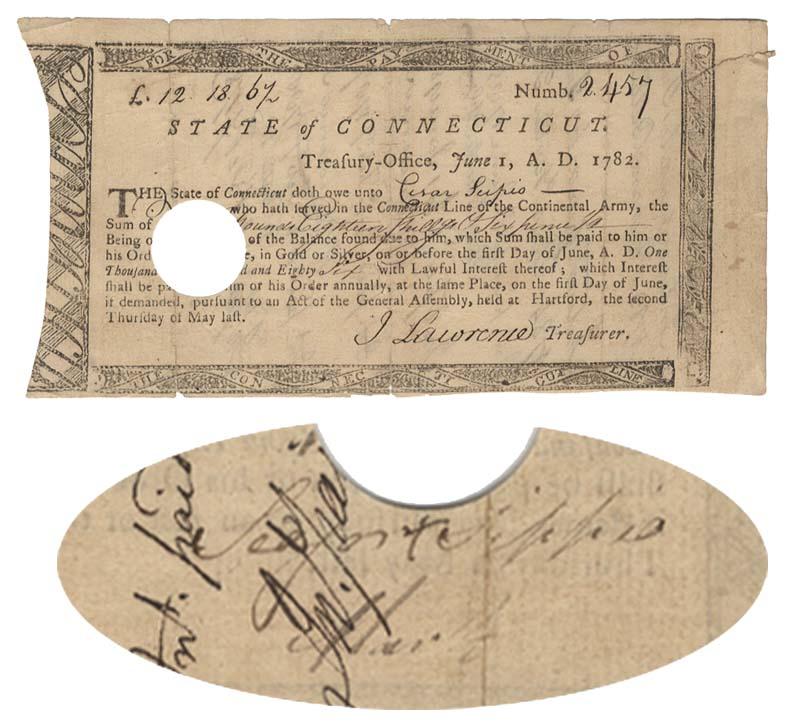 FOR THE PAYMENT OF
£. 12. 18. 6½ Numb. 2.457
STATE of CONNECTICUT.
Treasury-Office, June 1, A. D. 1782.
THE State of Connecticut doth owe unto Cesar Scipio
who hath ſerved in the Connecticut Line of the Continental Army, the
Sum of Pounds Eighteen Shillgs & Sixpence
Being of the Balance found due to him, which Sum ſhall be paid to him or
his Ord in Gold or Silver, on or before the firſt Day of June, A. D. One
Thouſand and Eighty Six with Lawful Intereſt thereof; which Intereſt
ſhall be pa him or his Order annually, at the ſame Place, on the firſt Day of June,
if demanded, purſuant to an Act of the General Aſſembly, held at Hartford, the ſecond
Thurſday of May laſt.
J Lawrence Treasurer.
THE CONNECTICUT LINE
Int. paid